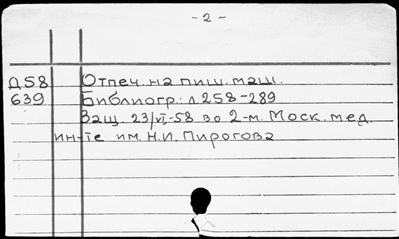 - 2 -
Д58 Отпеч. на пиш. маш.
639 Библиогр.: л. 258-289
Защ. 23/VI-58 во 2-м. Моск. мед.
ин-те им. Н.И. Пирогова